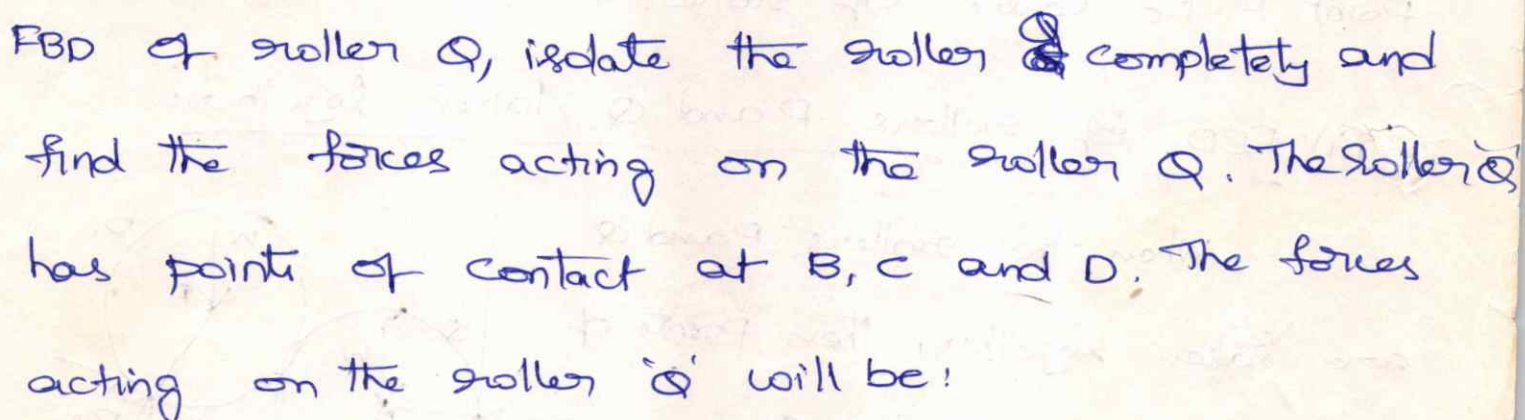 FBD of roller Q, isolate the roller Q completety and
find the forces acting on the roller Q. The roller 'Q'
has points of contact at B, C and D. The forces
acting on the roller 'Q' will be: